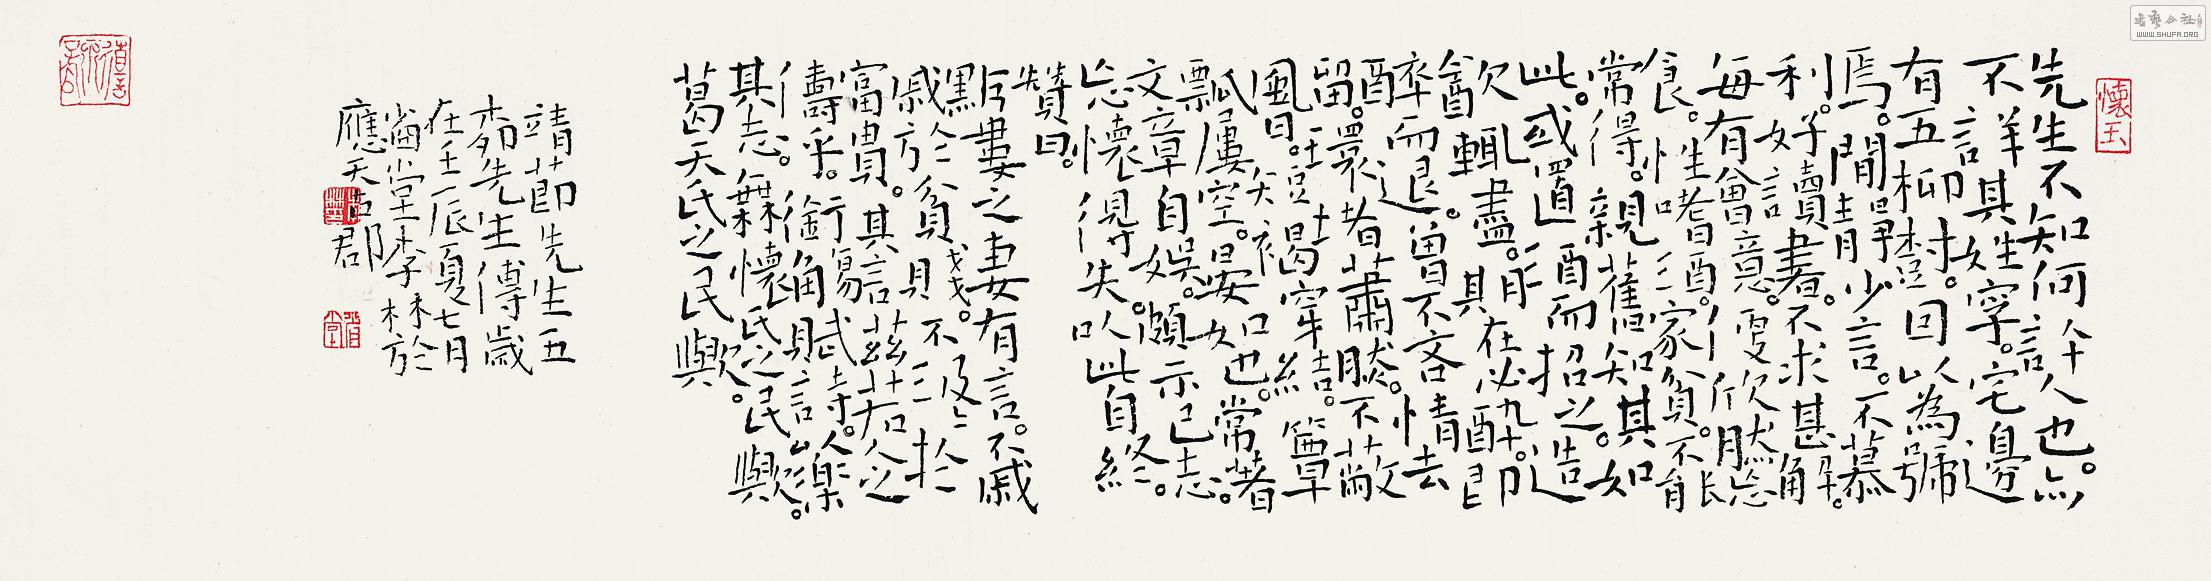 懷玉
先生不知何許人也。亦
不詳其姓字。宅邊
有五柳樹。因以為號
焉。閒靜少言。不慕
利。好讀書。不求甚解。
每有會意。便欣然忘
食。性嗜酒。家貧。不能
常得。親舊知其如
此。或置酒而招之。造
飲輒盡。期在必醉。既
醉而退。曾不吝情去
留。環堵蕭然。不蔽
風日。短褐穿結。簞
瓢屢空。晏如也。常著
文章自娛。頗示己志。
忘懷得失。以此自終。
贊曰。
黔婁之妻有言。不戚
戚於貧賤。不汲汲於
富貴。其言茲若人之
儔乎。銜觴賦詩。以樂
其志。無懷氏之民歟。
葛天氏之民歟。
靖節先生五
柳先生傳歲
在壬辰夏七月
堂李於
應天郡
WWW.SHUFA.ORG